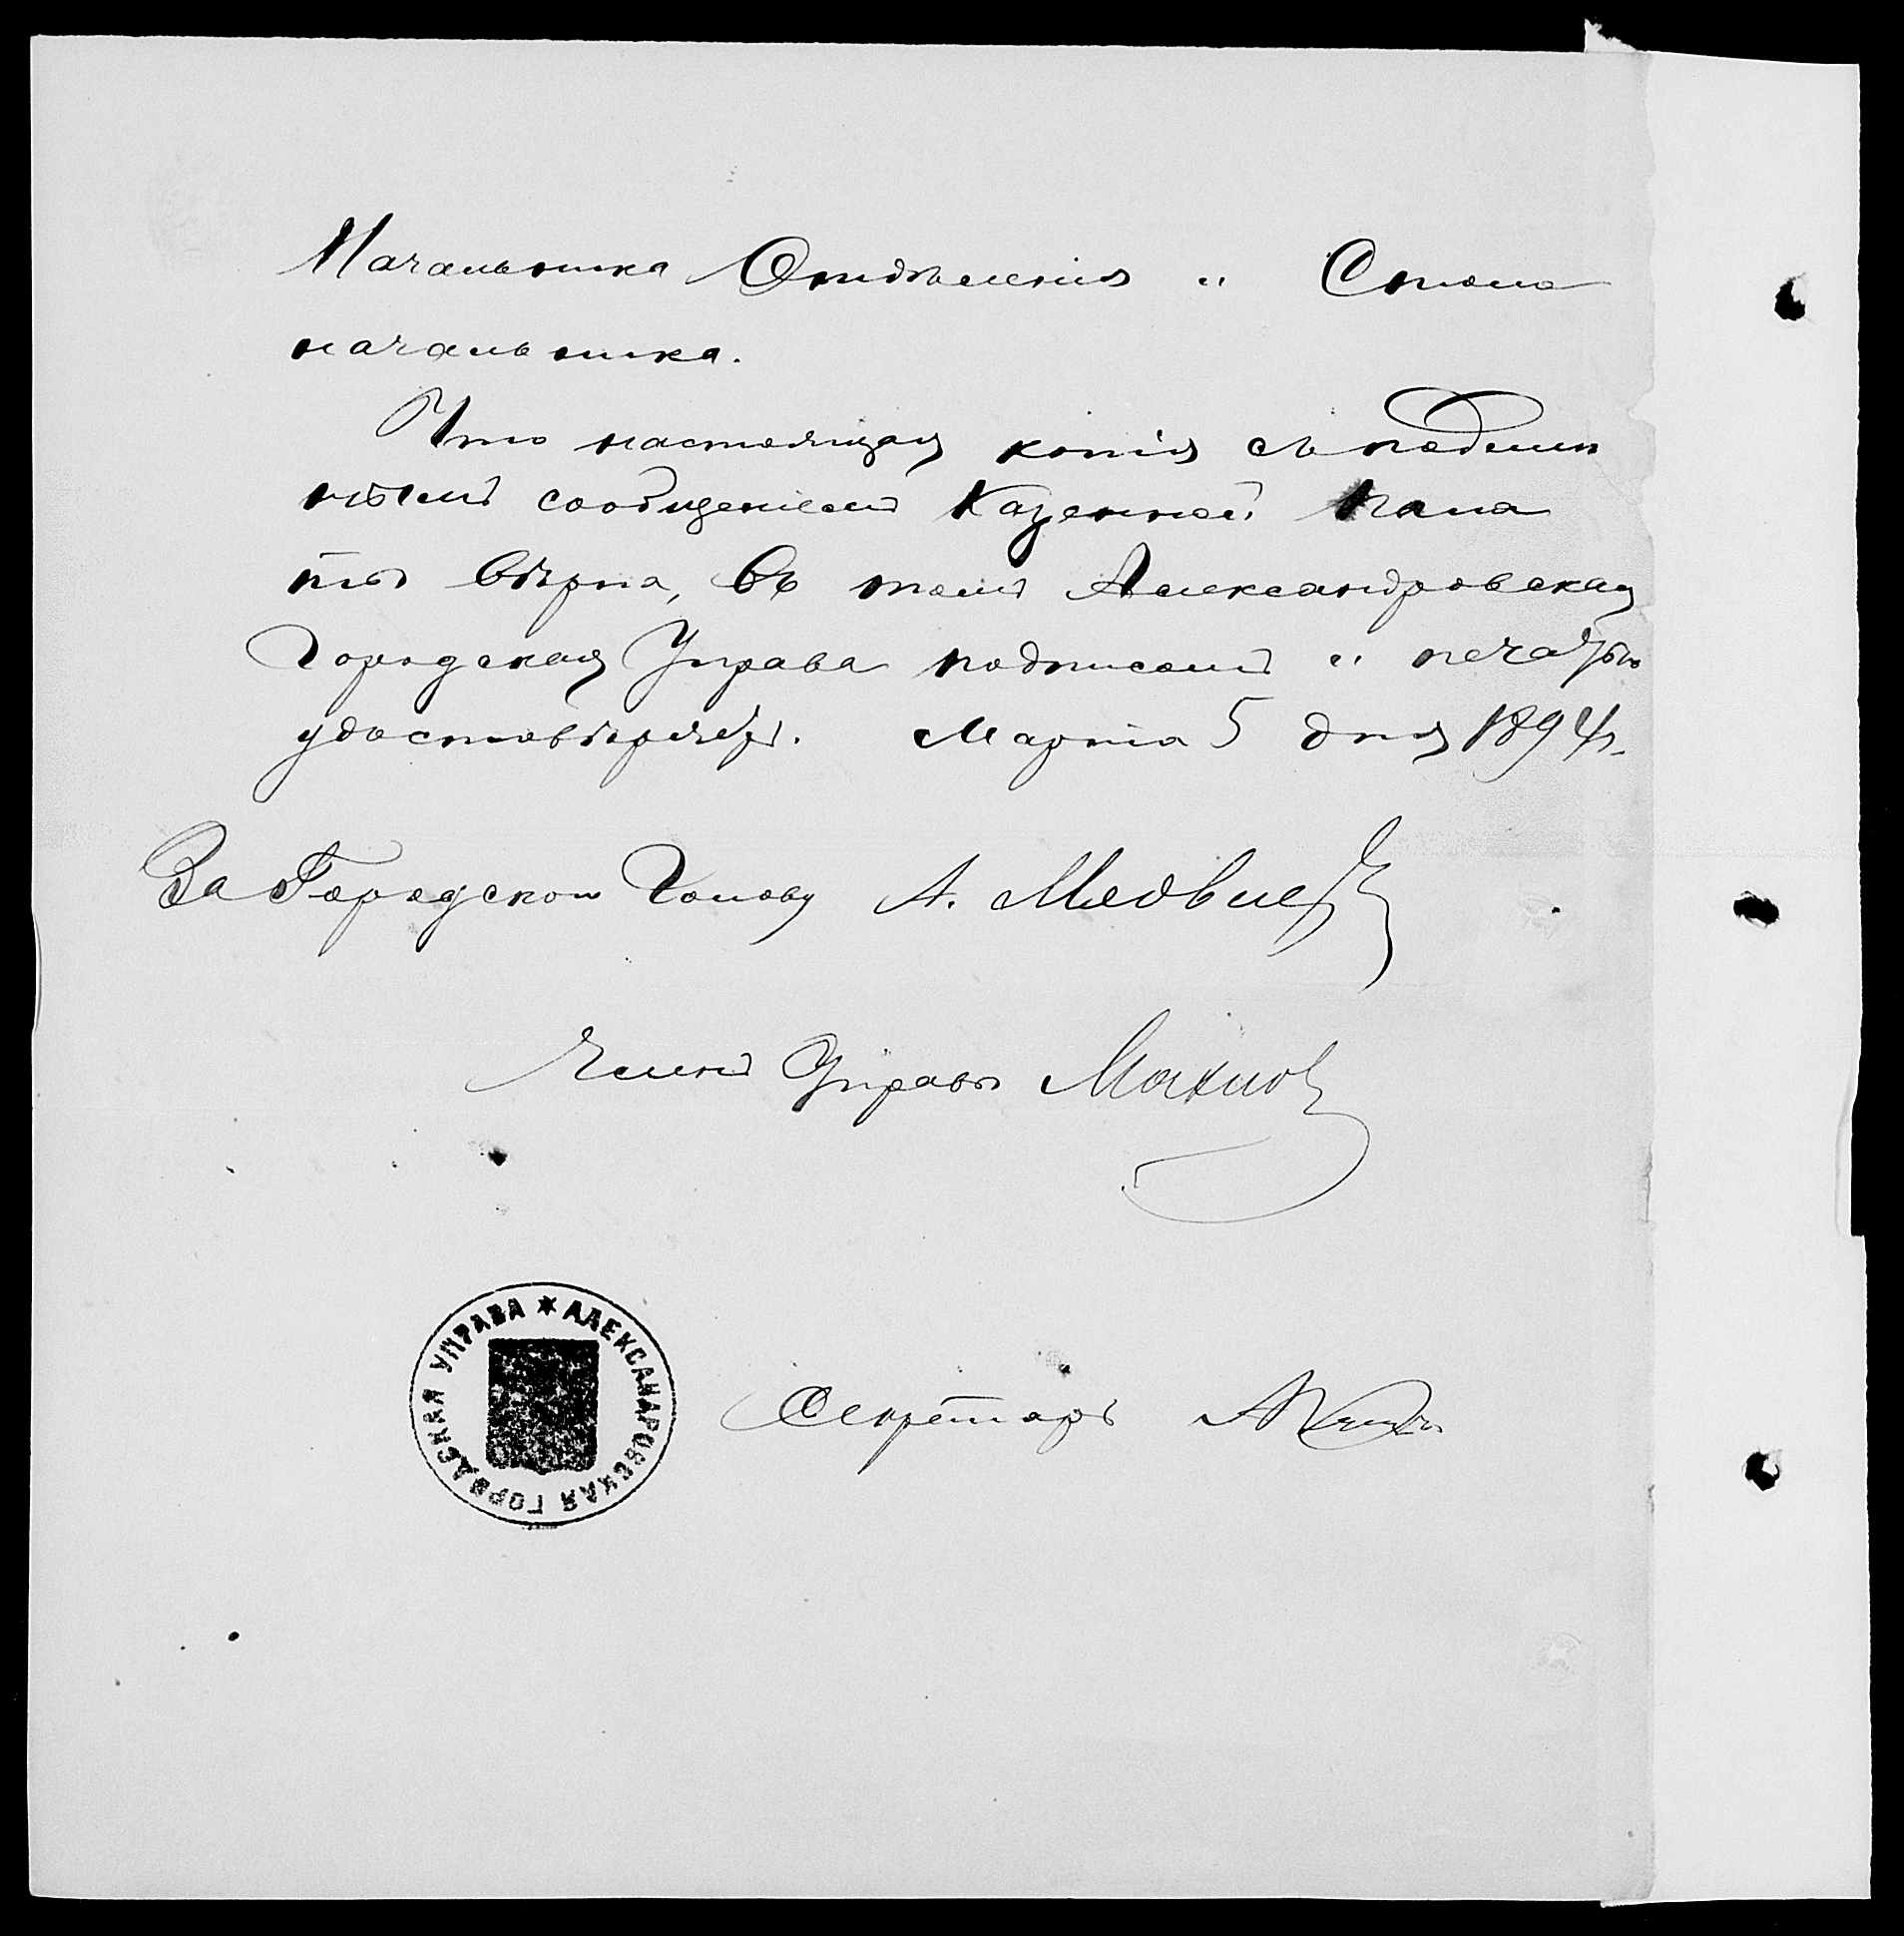 Начальника Отдѣленія и Столо
начальника.
Что настоящая копія съ подлин
нымъ сообщеніемъ Казенной Пала
ты вѣрна, въ томъ Александровская
Городская Управа подписомъ и печатью
удостовѣряетъ. Марта 5 дня 1894 г.
За Городскою Голову А. Медвѣ
Членъ Управы Махно
Секретарь
АЛЕКСАНДРОВСКАЯ ГОРОДСКАЯ УПРАВА